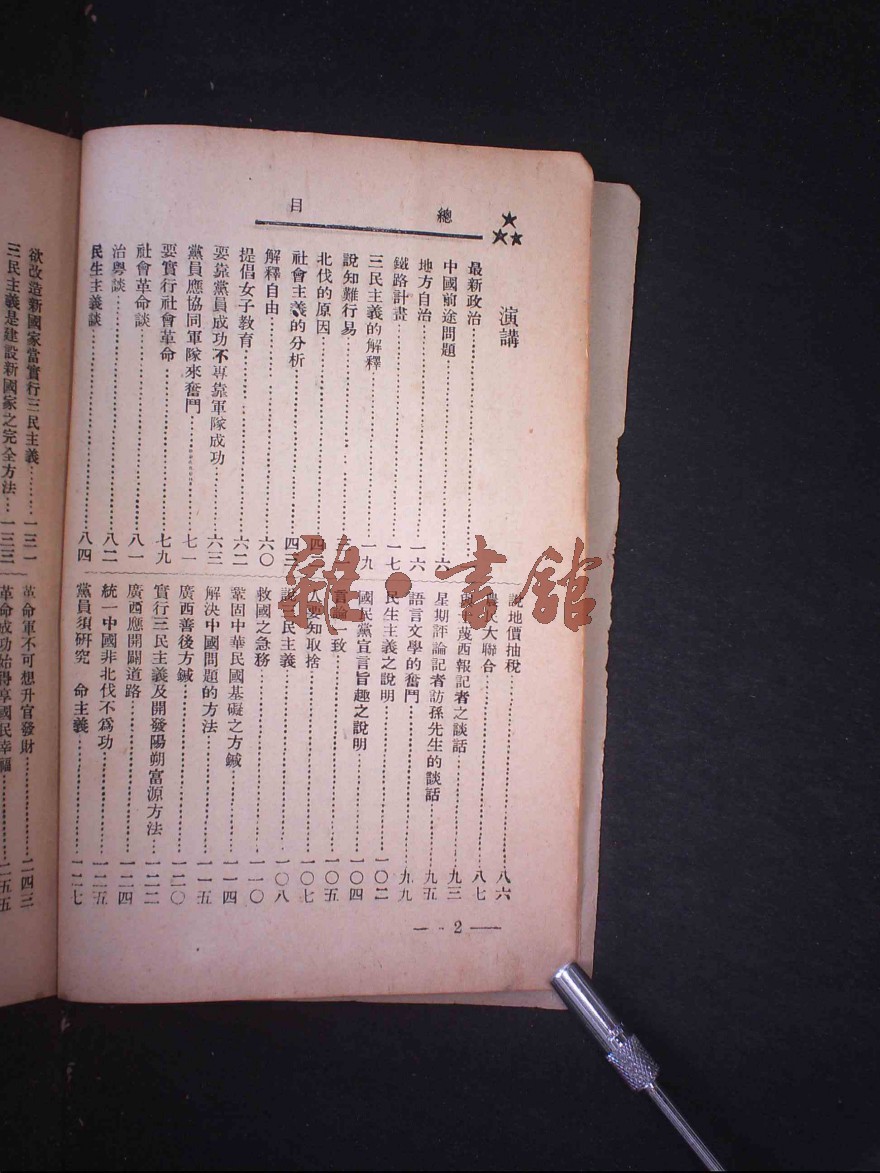 總目
演講
最新政治……一
中國前途問題……六
地方自治……一六
鐵路計畫……一七
三民主義的解釋……一九
說知難行易……三
北伐的原因……四
社會主義的分析……四三
解釋自由……六〇
提倡女子教育……六二
要靠黨員成功不專靠軍隊成功……六三
黨員應協同軍隊來奮鬥……七一
要實行社會革命……七九
社會革命談……八一
治粵談……八二
民生主義談……八四
說地價抽稅……八六
農民大聯合……八七
與士蔑西報記者之談話……九三
星期評論記者訪孫先生的談話……九五
語言文學的奮鬥……九九
民生主義之說明……一〇二
國民黨宣言旨趣之說明……一〇四
言論一致……一〇五
人要知取捨……一〇七
說三民主義……一〇八
救國之急務……一一〇
鞏固中華民國基礎之方鍼……一一四
解決中國問題的方法……一一五
廣西善後方鍼……一二〇
實行三民主義及開發陽朔富源方法……一二二
廣西應開闢道路……一二四
統一中國非北伐不爲功……一二五
黨員須研究 命主義……一二七
— 2 —
欲改造新國家當實行三民主義……一三一
三民主義是建設新國家之完全方法…一三三
革命軍不可想升官發財……一四三
革命成功始得享國民幸福……一五五
雜·書館